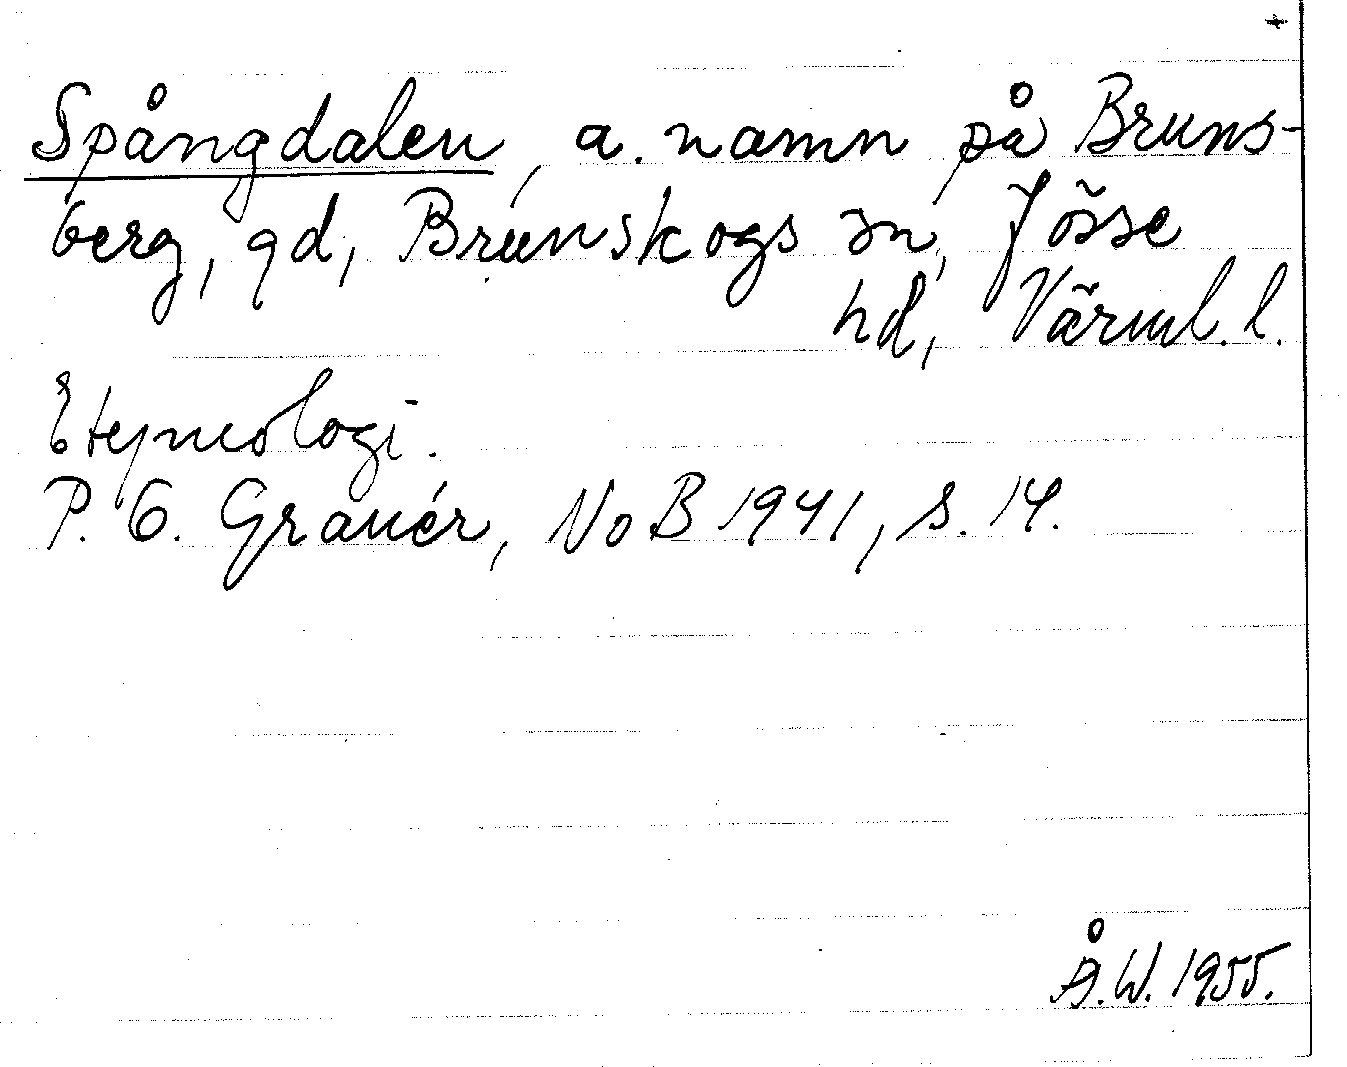 +
Spångdalen, a. namn på Bruns-
berg, gd, Brunskogs sn, Jösse
hd, Värml. l.
Etymologi.
P. G. Granér, NoB 1941, s. 14.
Å.W. 1955.